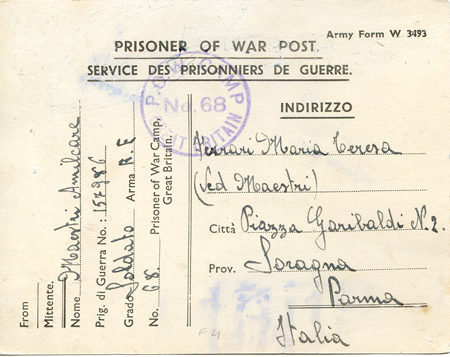 Army Form W 3493
PRISONER OF WAR POST.
SERVICE DES PRISONNIERS DE GUERRE.
P.O.W. CAMP
No. 68
GREAT BRITAIN
INDIRIZZO
Ferrari Maria Teresa
(Ved Maestri)
Città Piazza Garibaldi N. 2.
Prov. Soragna
Parma
Italia
From
Mittente.
Nome Maestri Amilcare
Prig. di Guerra No.: 157986
Grado Soldato Arma R.E
No. 68 Prisoner of War Camp,
Great Britain.